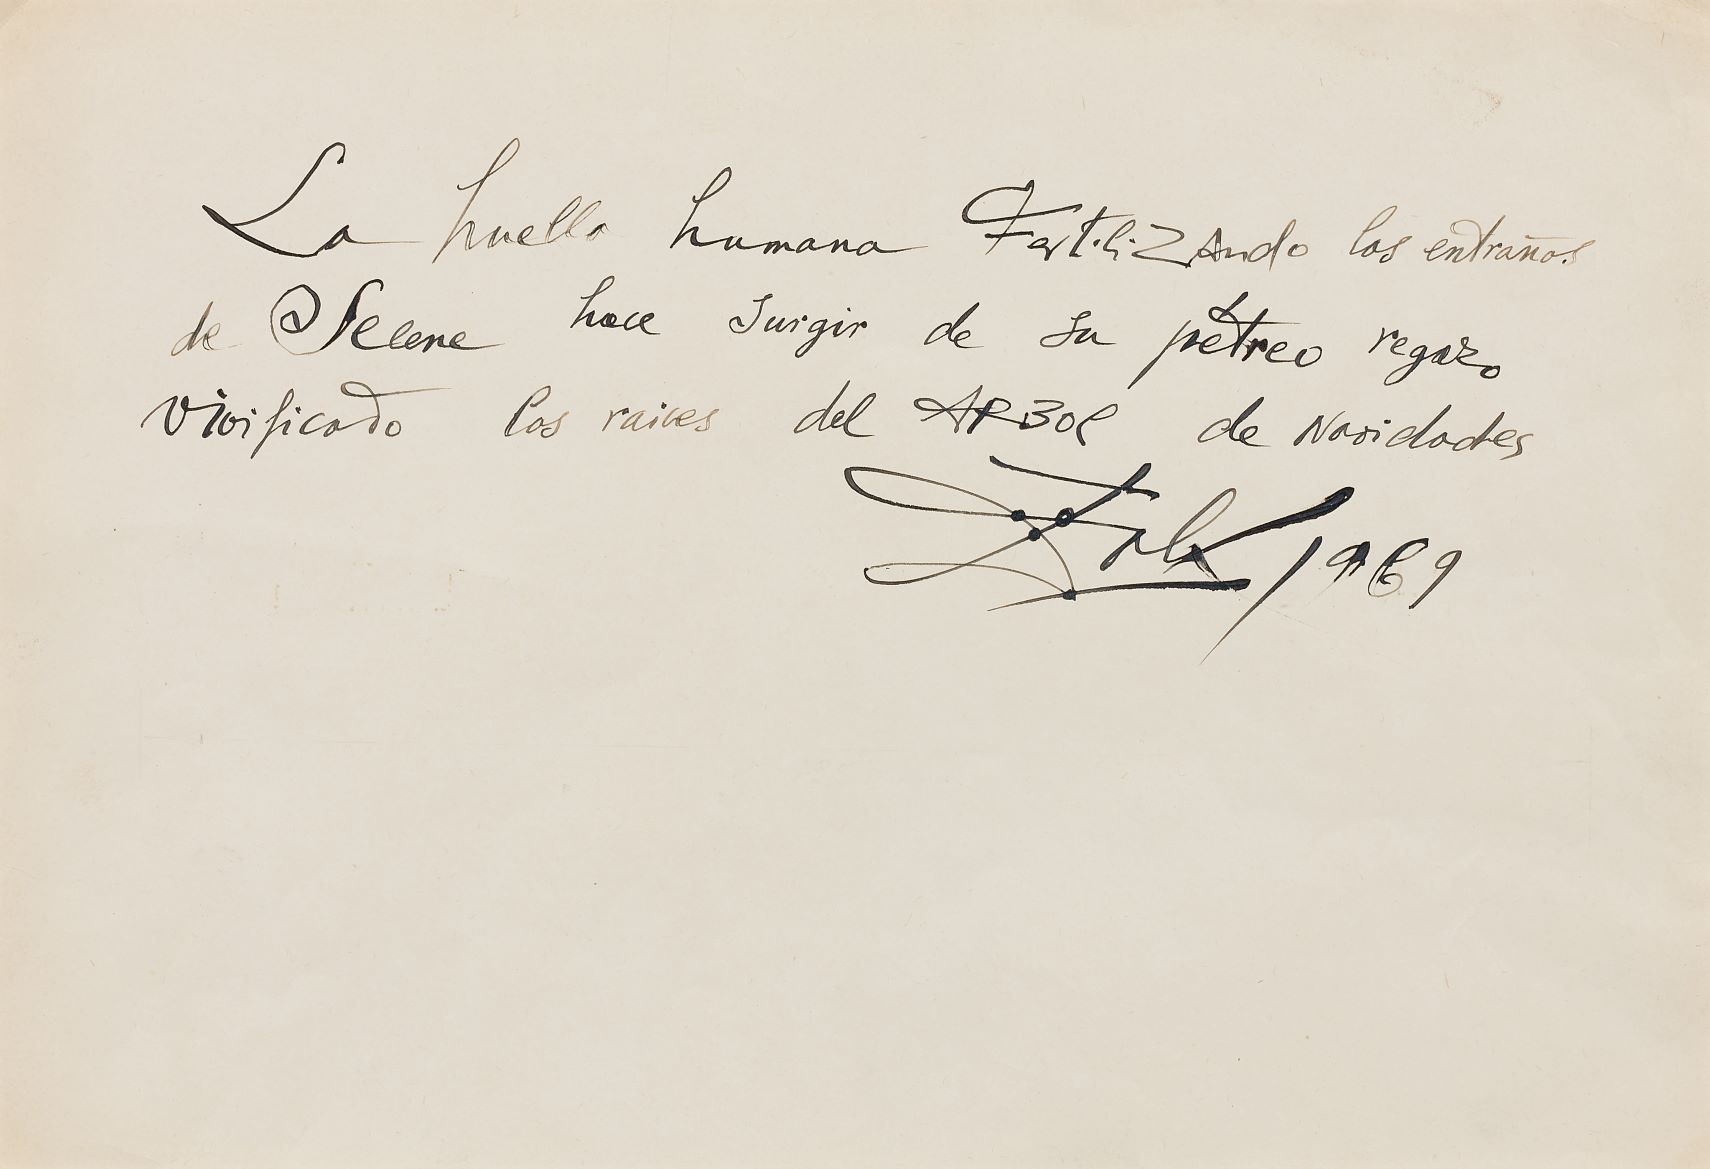 La huella humana FertiliZAndo las entrañas
de Selene hace surgir de su pétreo regazo
vivificado las raices del ARBOL de Navidades
Dalí 1969